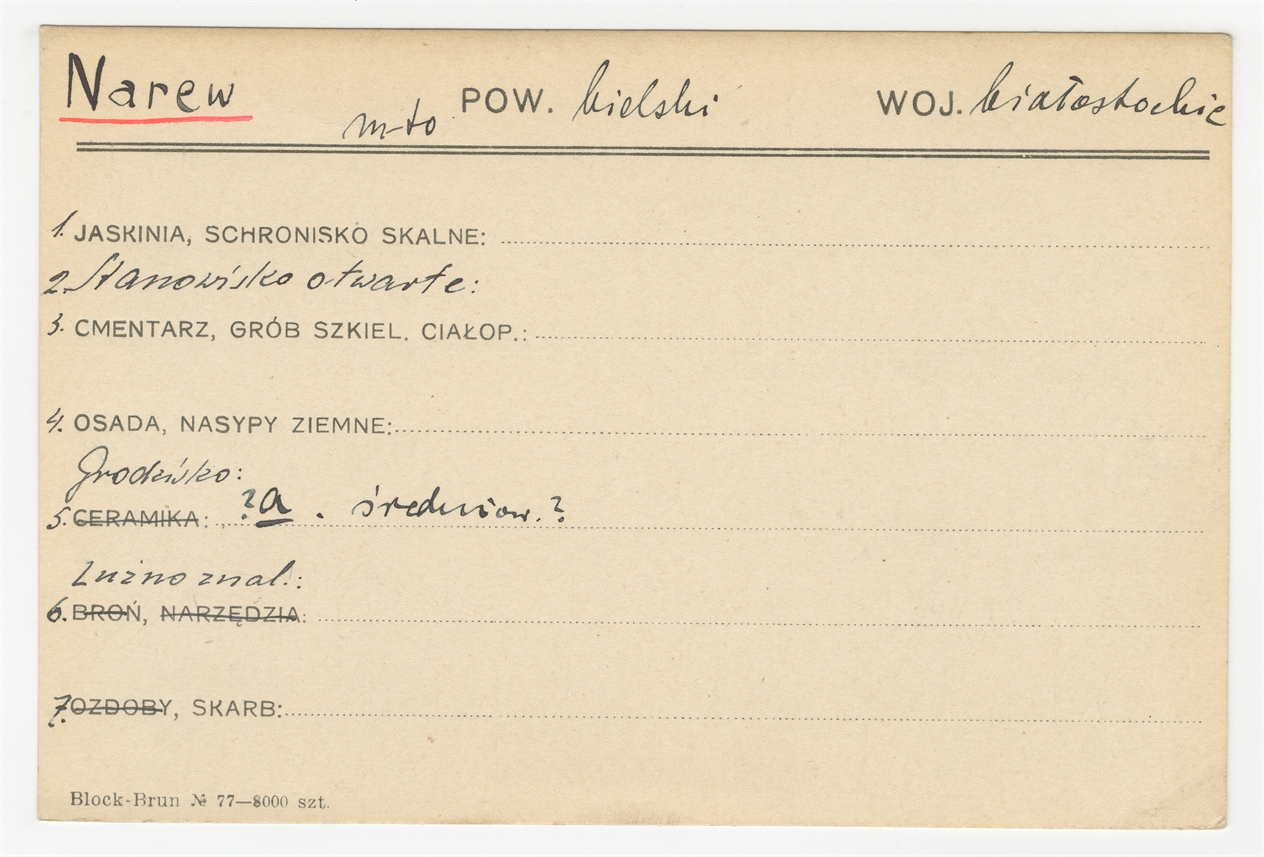 Narew m-to POW. bielski WOJ. białostockie
1. JASKINIA, SCHRONISKO SKALNE:
2. Stanowisko otwarte:
3. CMENTARZ, GRÓB SZKIEL. CIAŁOP.:
4. OSADA, NASYPY ZIEMNE:
Grodzisko:
5. CERAMIKA: ? a . średniow.?
Luźno znal.:
6. BROŃ, NARZĘDZIA:
7. OZDOBY, SKARB:
Block-Brun № 77—8000 szt.